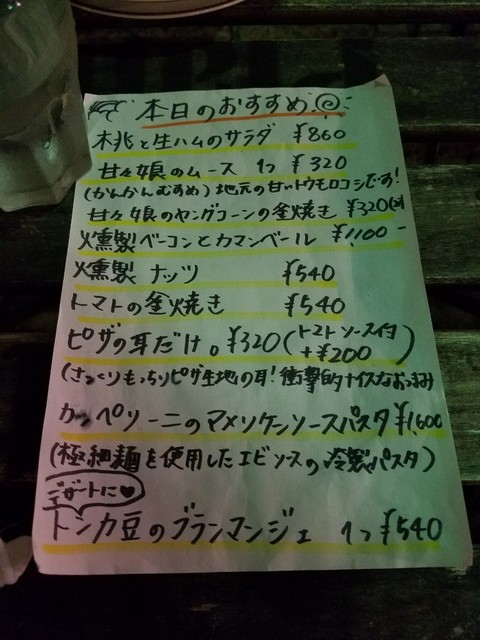 本日のおすすめ
桃と生ハムのサラダ ¥860
甘々娘のムース 1つ ¥320
(かんかんむすめ)地元の甘いトウモロコシです!
甘々娘のヤングコーンの釜焼き ¥320
火燻製ベーコンとカマンベール ¥1,100-
火燻製 ナッツ ¥540
トマトの釜焼き ¥540
ピザの耳だけ。¥320(トマトソース付 +¥200)
(さっくりもっちりピザ生地の耳!衝撃的ナイスなおつまみ
カッペリーニのアメリケンソースパスタ ¥1,600
(極細麺を使用したエビソースの冷製パスタ)
デザートに♥
トンカ豆のブランマンジェ 1つ ¥540